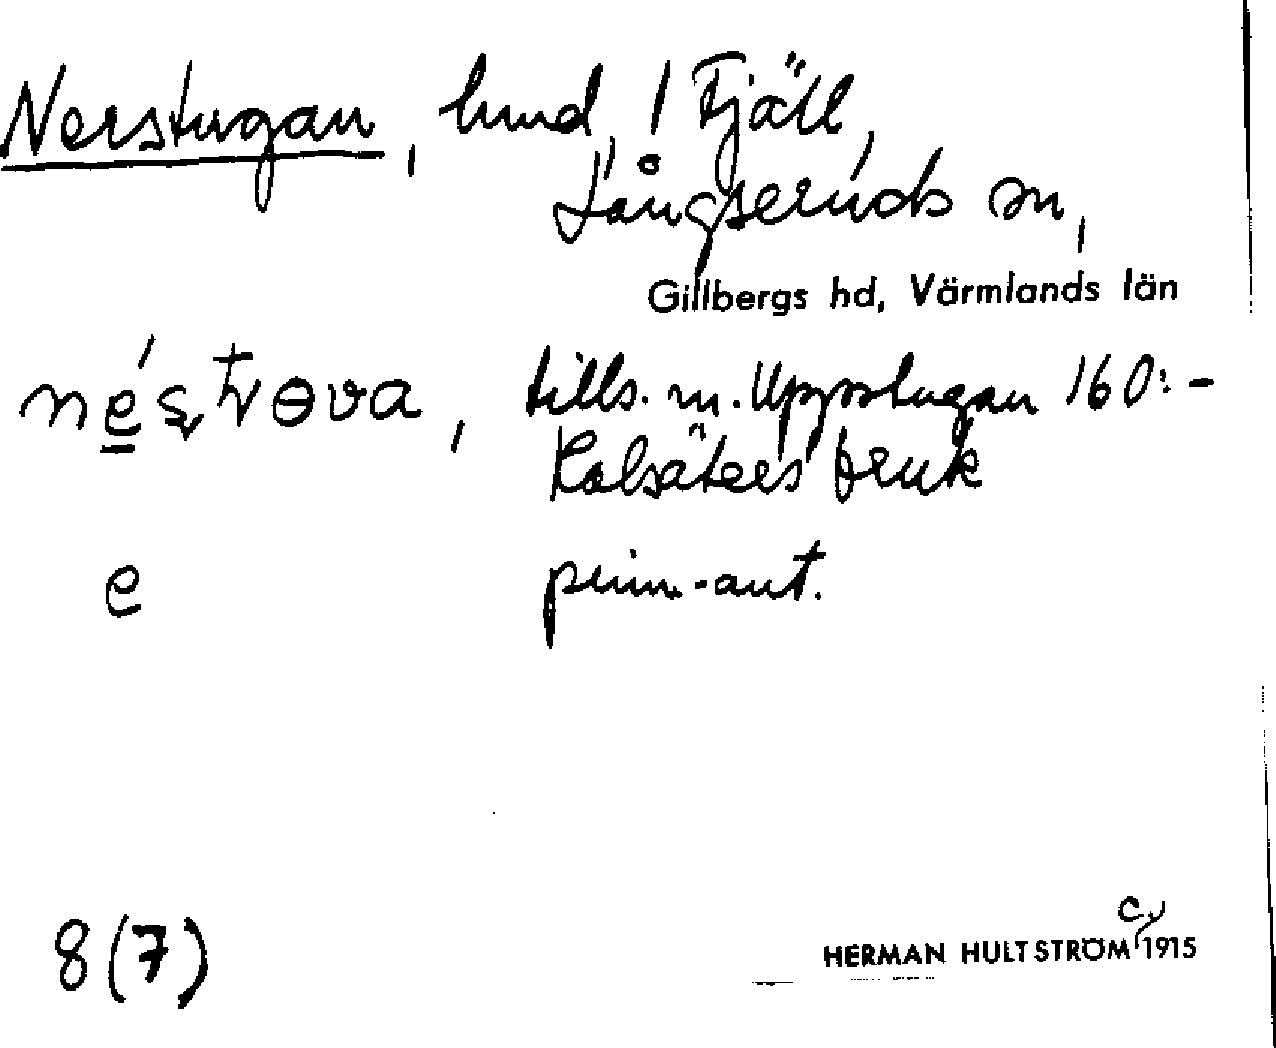 Nerstugan, hmd, ! Fjäll,
Långseruds sn,
Gillbergs hd, Värmlands län
tills. m. Uppstugan 160:-
Kolsäters bruk
e prim-ant.
8(7)
HERMAN HULTSTRÖM c. 1915